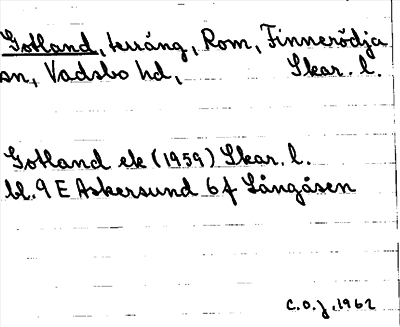 Gotland, terräng, Rom, Finnerödja
sn, Vadsbo hd, Skar. l.
Gotland ek (1959) Skar. l.
bl. 9 E Askersund 6 f Långåsen
C.O.J. 1962